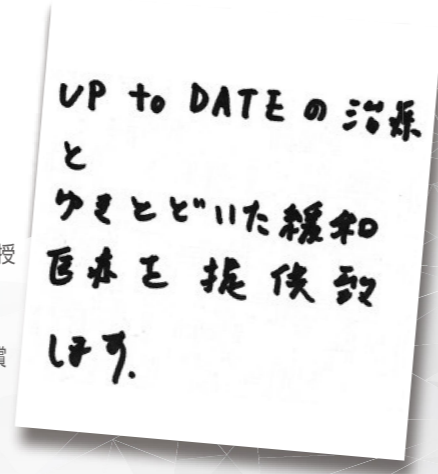 UP to DATE の治療
と
ゆきとどいた緩和
医療を提供致
します.
授